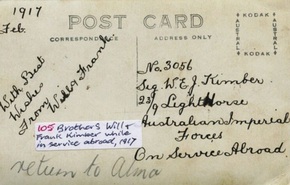 1917
Feb.
POST CARD
CORRESPONDENCE
ADDRESS ONLY
AUSTRAL
KODAK
AUSTRAL
KODAK
With Best
Wishes
From Will & Frank
No. 3056
Sig. W. E. J. Kimber
Light Horse
Australian Imperial
Forces
On Service Abroad
105 Brothers Will &
Frank Kimber while
in service abroad, 1917
return to Alma